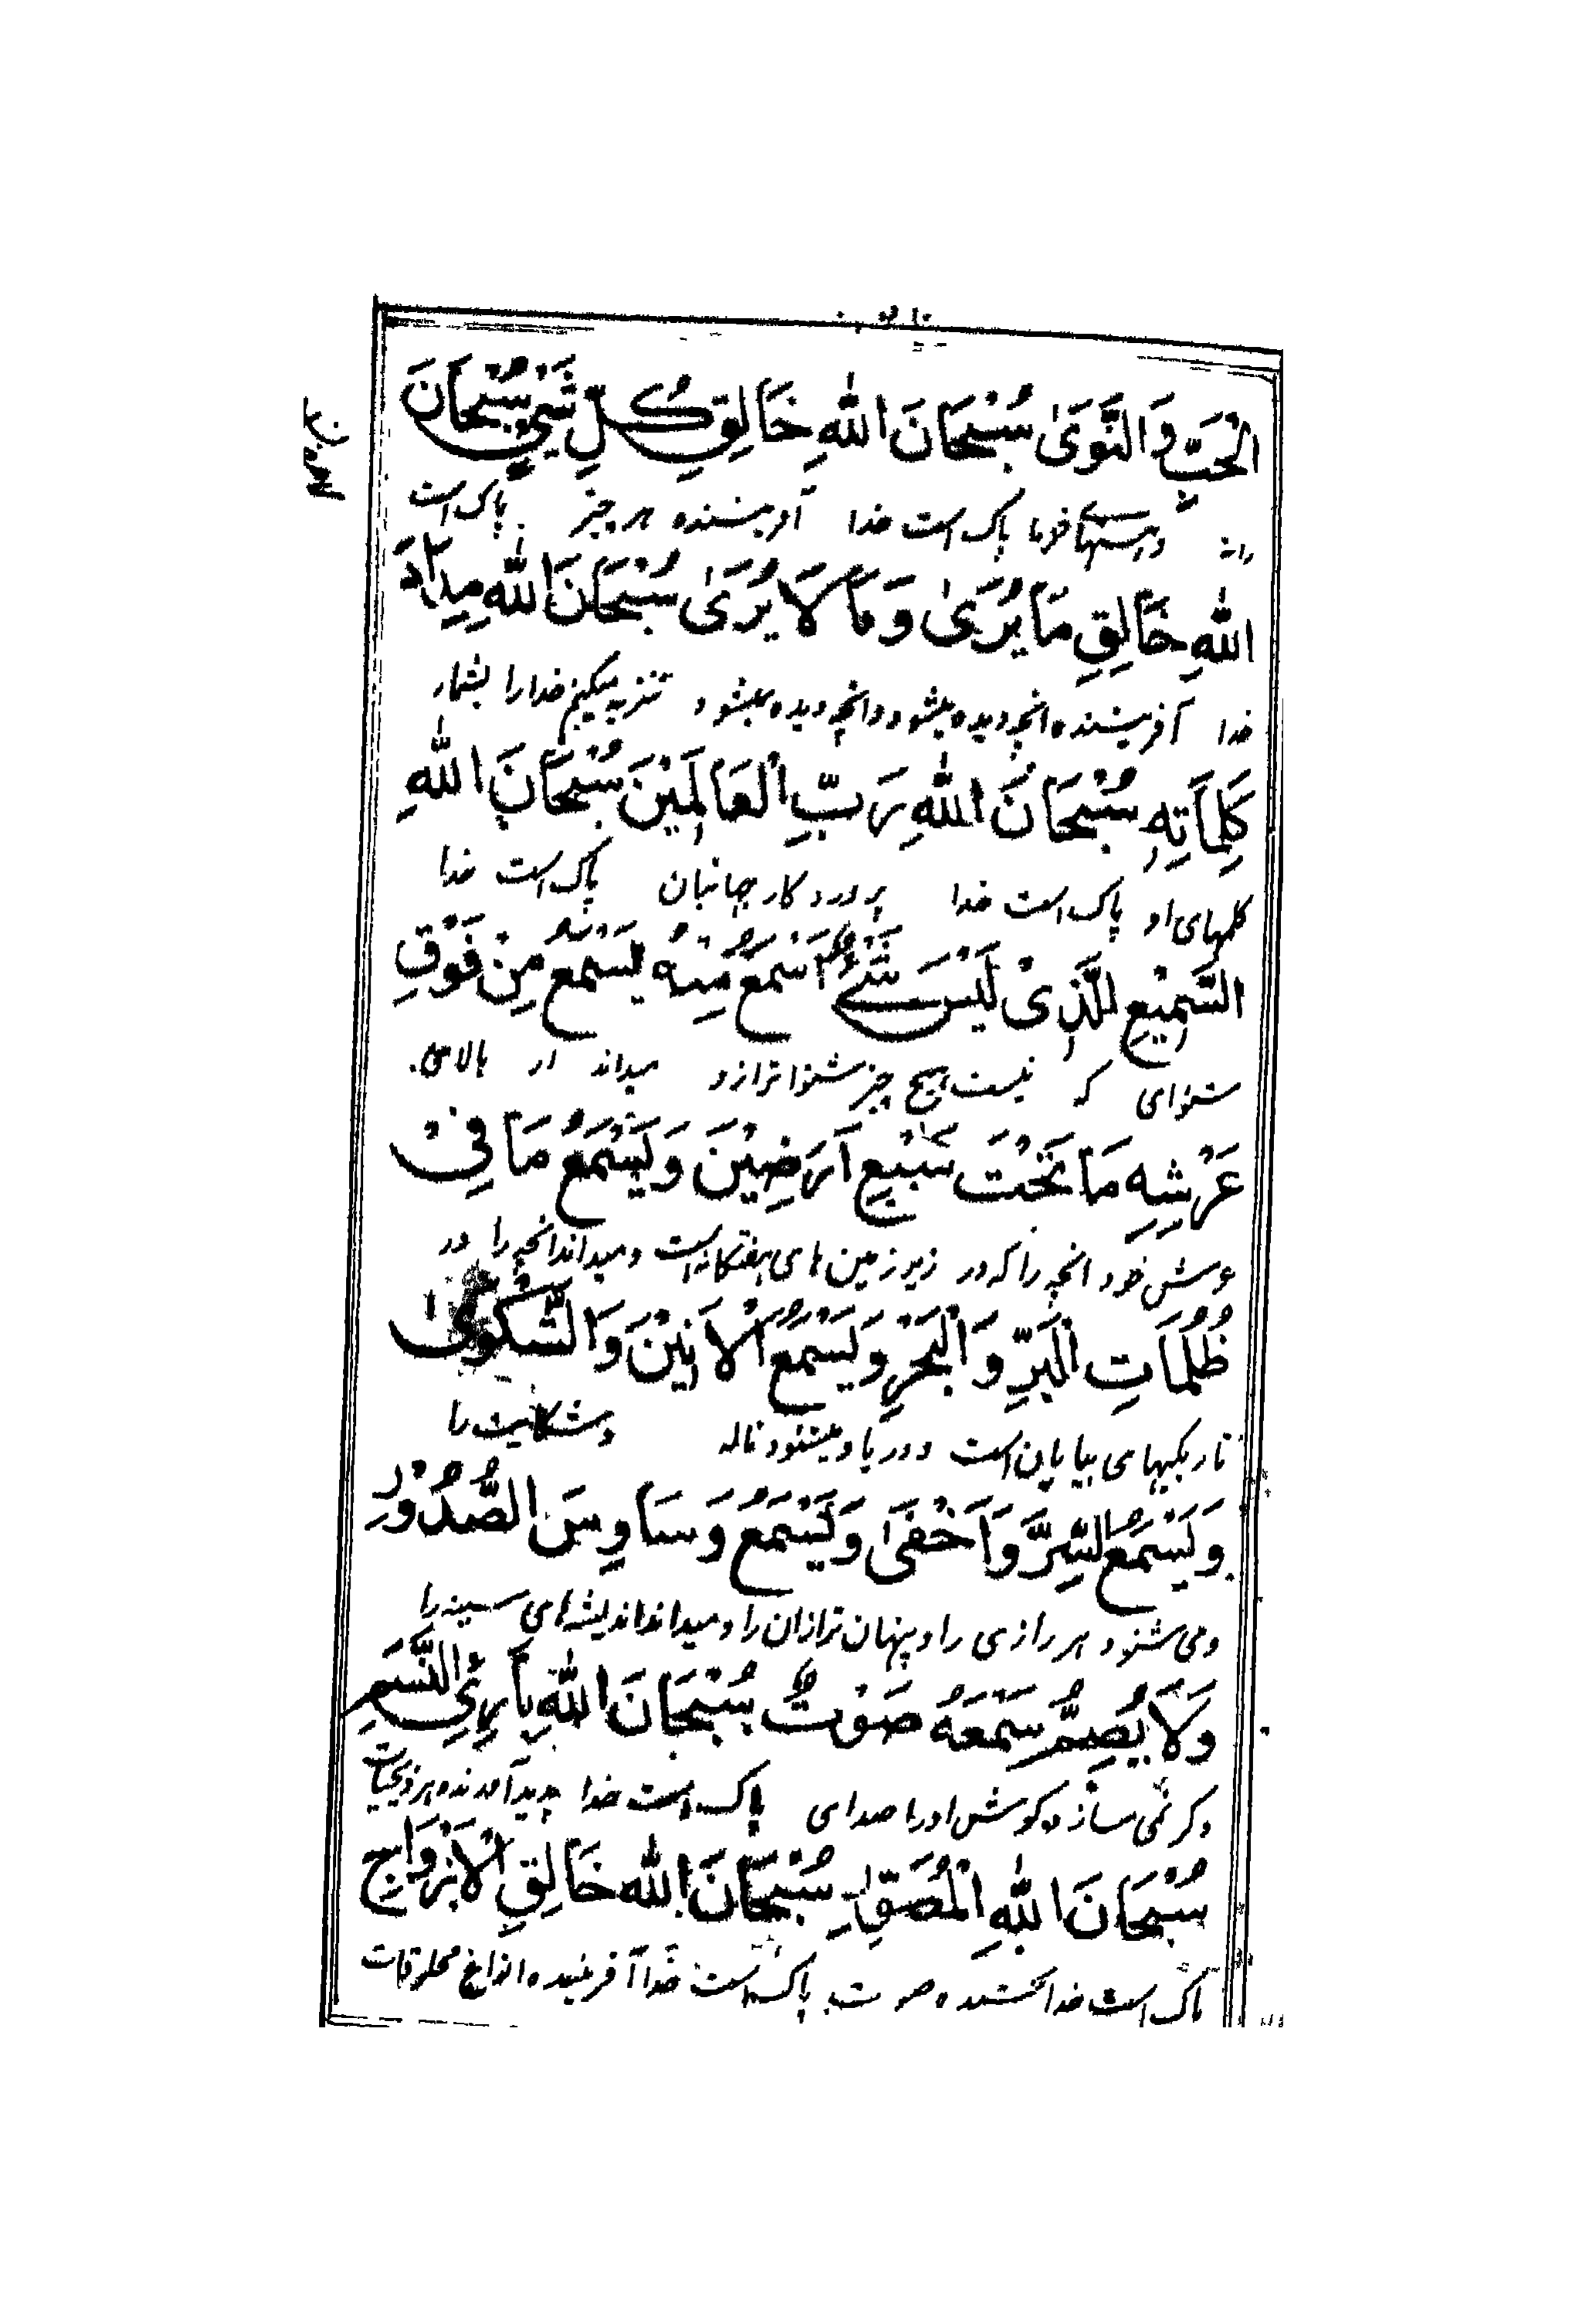 الْحَبِّ وَالنَّوَىٰ سُبْحَانَ اللهِ خَالِقِ كُلِّ شَيْءٍ سُبْحَانَ
دانه و هستهای خرما پاک است خدا آفریننده هر چیز پاک است
اللهِ خَالِقِ مَا يُرَىٰ وَمَا لَا يُرَىٰ سُبْحَانَ اللهِ مِدَادَ
خدا آفریننده انچه دیده میشود و انچه دیده نمیشود تنزیه میکنیم خدا را بشمار
كَلِمَاتِهِ سُبْحَانَ اللهِ رَبِّ الْعَالَمِيْنَ سُبْحَانَ اللهِ
کلمهای او پاک است خدا پروردکار جهانیان پاک است خدا
السَّمِيْعِ الَّذِيْ لَيْسَ شَيْءٌ اَسْمَعَ مِنْهُ يَسْمَعُ مِنْ فَوْقِ
شنوای که نیست هیچ چیز شنواتر ازو میداند از بالای
عَرْشِهِ مَا تَحْتَ سَبْعِ اَرَضِيْنَ وَيَسْمَعُ مَا فِيْ
عرش خود انچه را که در زیر زمین های هفتکانه است و میداند انچه را در
ظُلُمَاتِ الْبَرِّ وَالْبَحْرِ وَيَسْمَعُ الْاَنِيْنَ وَالشَّكْوىٰ
تاریکیهای بیابان است و دریا و میشنود ناله و شکایت را
وَيَسْمَعُ السِّرَّ وَاَخْفَىٰ وَيَسْمَعُ وَسَاوِسَ الصُّدُوْرِ
و می شنود هر رازی را و پنهان تر ازان را و میداند اندیشهای سینه را
وَلَا يُصِمُّ سَمْعَهُ صَوْتٌ سُبْحَانَ اللهِ بَارِئِ النَّسَمِ
و کر نمی سازد کوش او را صدای پاک است خدا پدید آورنده هر ذیحیات
سُبْحَانَ اللهِ الْمُصَوِّرِ سُبْحَانَ الله خَالِقِ الْاَزْوَاجِ
پاک است خدا پاک است خدا آفریننده انواع مخلوقات